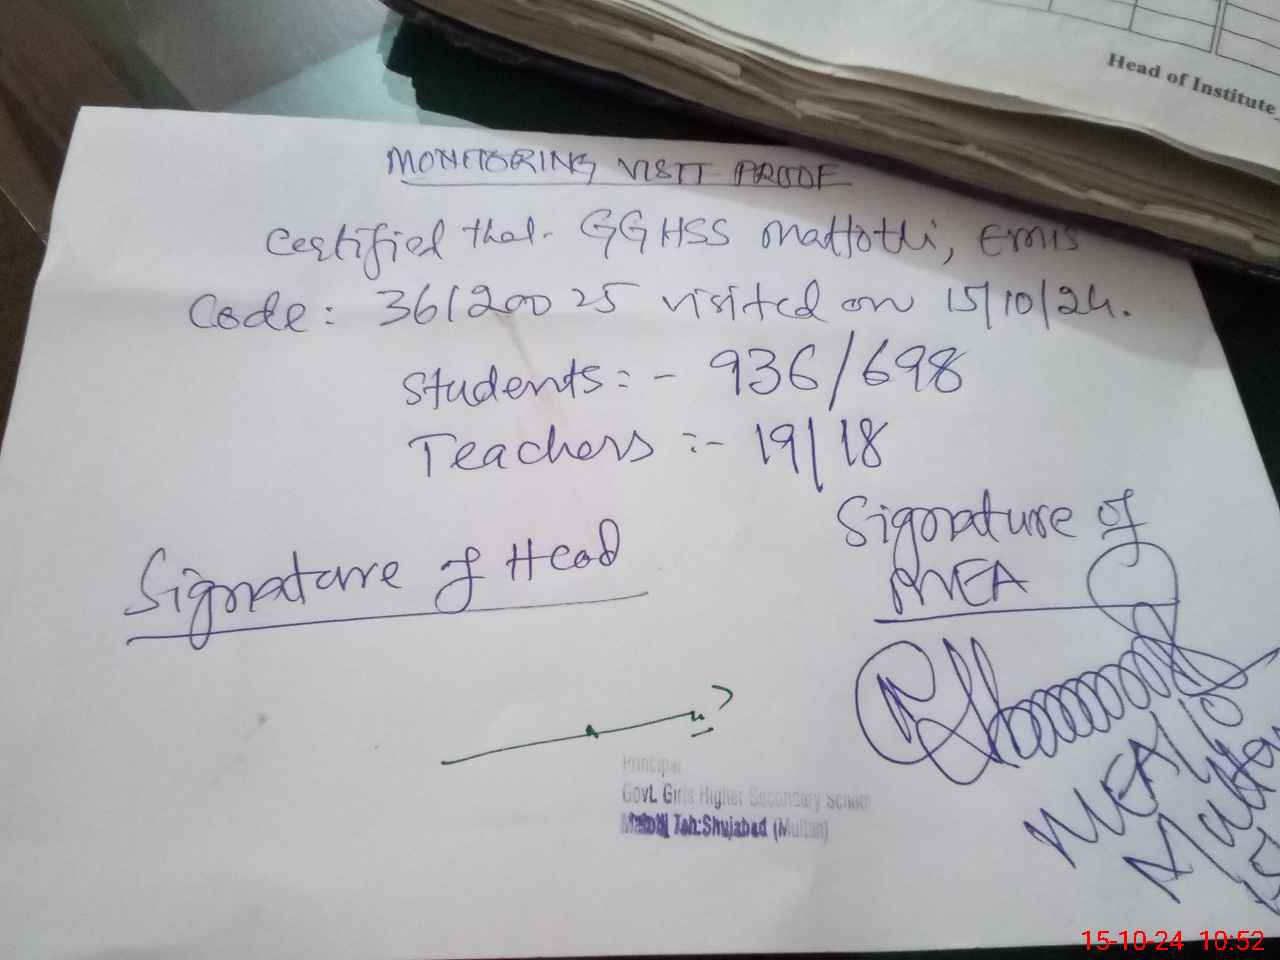 Head of Institute
MONITORING VISIT PROOF
Certified that GGHSS Mattotli, EMIS
Code: 36120025 visited on 15/10/24.
Students:- 936/698
Teachers:- 19/18
Signature of Head
Signature of
MEA
Principal
Govt. Girls Higher Secondary School
Teh:Shujabad (Multan)
MEA/10
15-10-24 10:52